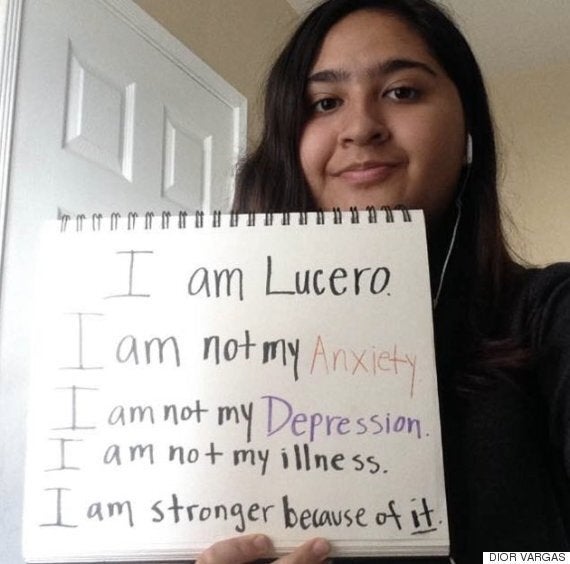 I am Lucero.
I am not my Anxiety.
I am not my Depression.
I am not my illness.
I am stronger because of it.
DIOR VARGAS